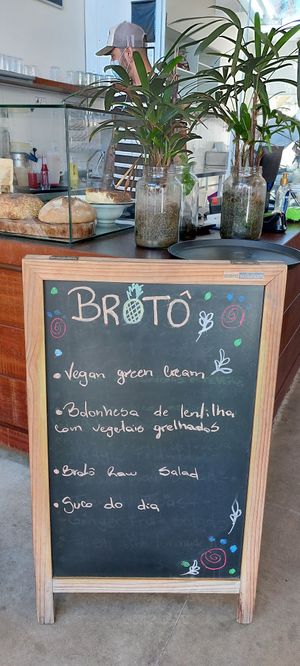 BROTÔ
• Vegan green cream
• Bolonhesa de lentilha
com vegetais grelhados
• Brotô Raw Salad
• Suco do dia